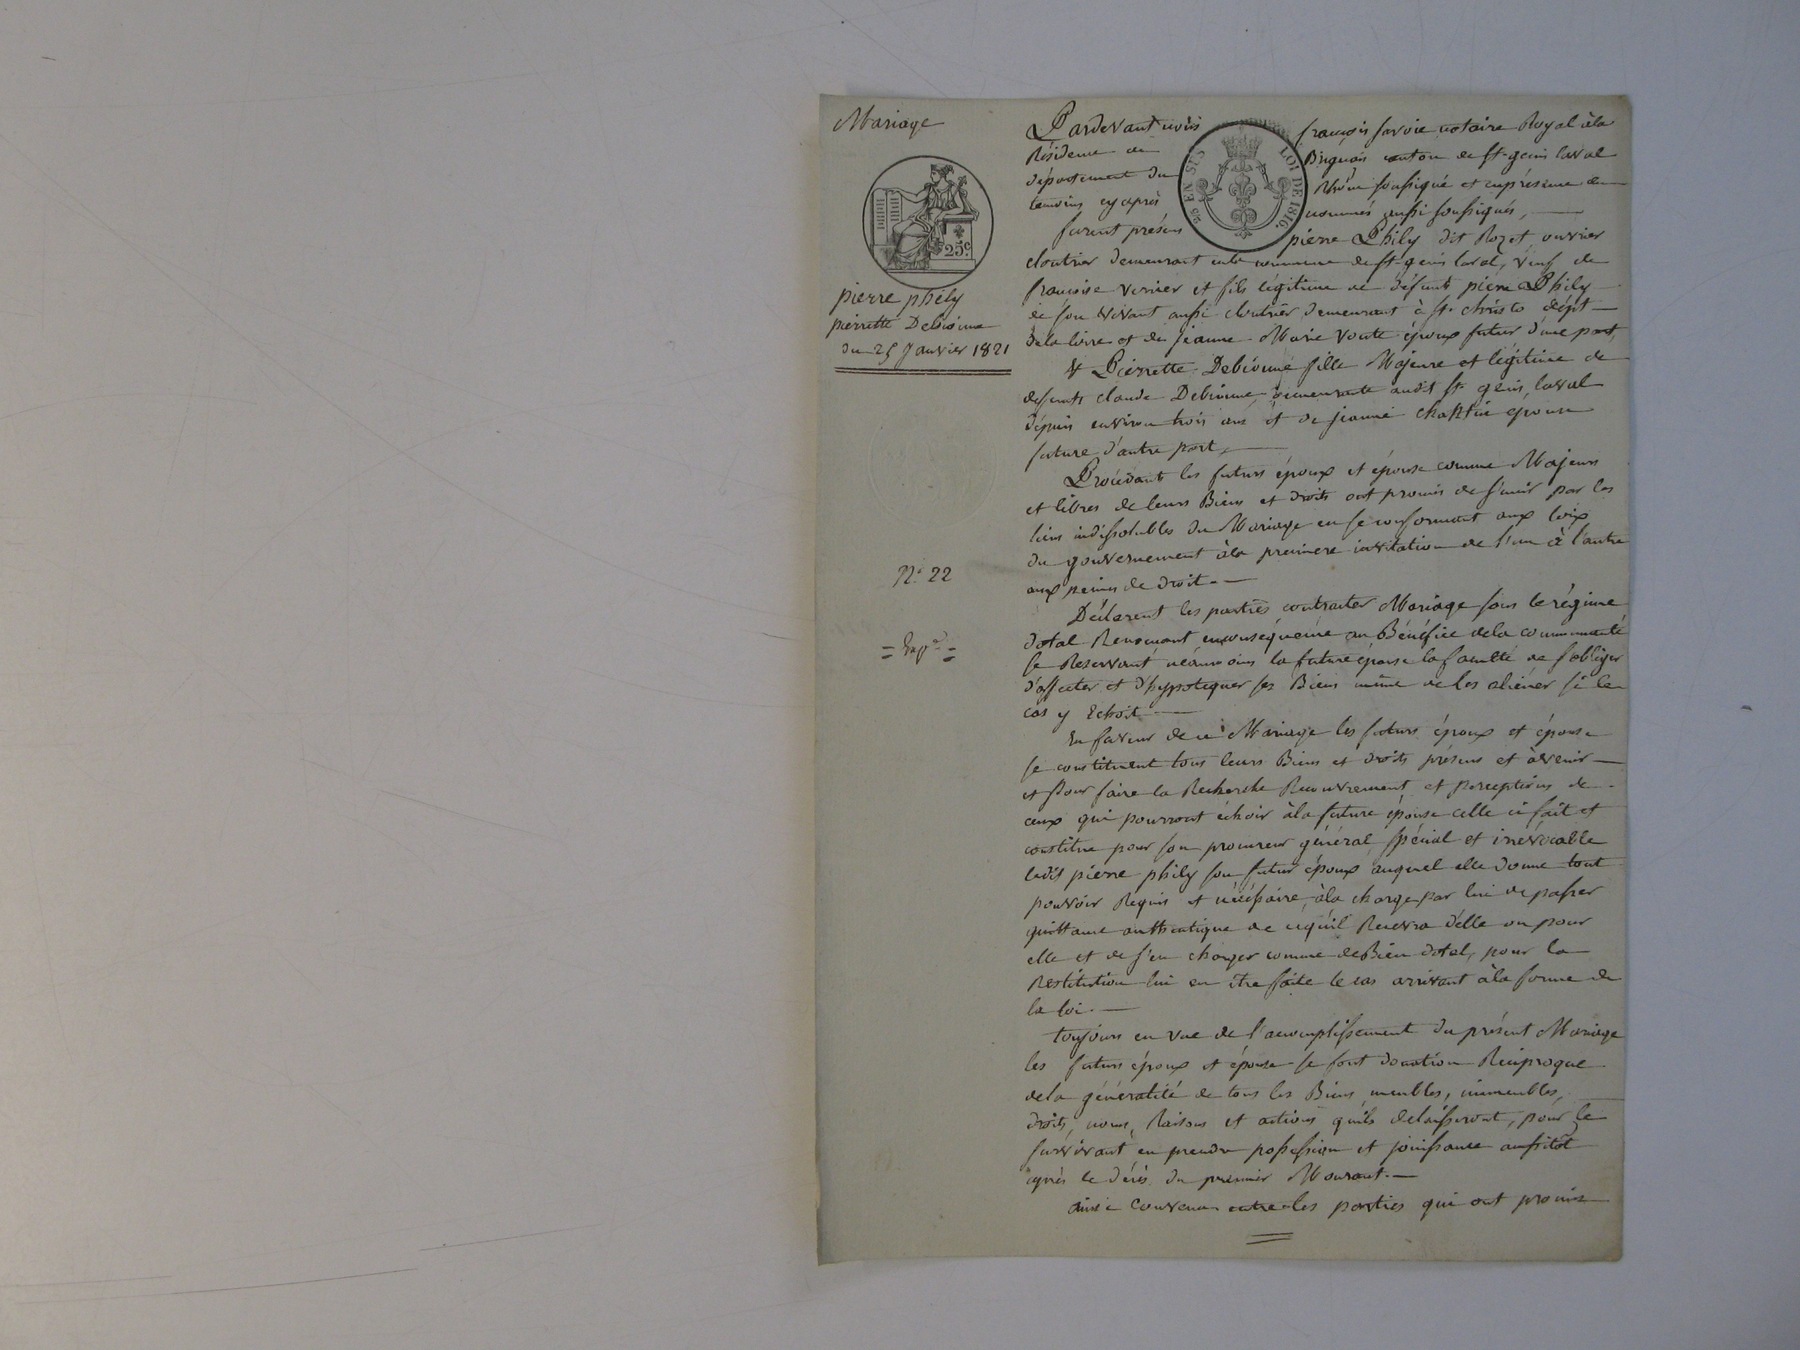 Mariage
25c.
pierre phily
pierrette Debioune
du 25 Janvier 1821
N.o 22
= Exp.on =
25 EN SUS LOI DE 1816.
Pardevant nous françois Savoie notaire Royal à la
Résidence de Brignais canton de St. genis laval
département du Rhône soussigné et en présence des
temoins cy après nommés aussi soussignés,
furent présens pierre Phily dit Rozet ouvrier
cloutier demeurant en la commune de St. genis laval, veuf de
françoise verrier et fils légitime de défunt pierre Phily
de son vivant aussi cloutier demeurant à St. christo dépt
de la loire et de jeanne Marie voute époux futur d'une part,
& Pierrette Debioune fille Majeure et légitime de
defunts claude Debioune, demeurante audit St. genis, laval
depuis environ trois ans et de jeanne épouse
future d'autre part,
Procédant les futurs époux et épouse comme Majeurs
et libres de leurs Biens et droits ont promis de s'unir par les
liens indissolubles du Mariage en se conformant aux loix
du gouvernement à la premiere invitation de l'un à l'autre
aux peines de droit.
Déclarent les parties contracter Mariage sous le régime
dotal Renonçant en conséquence au Bénéfice de la communauté
se Reservant néanmoins la future épouse la faculté de s'obliger
d'affecter et d'hypotequer ses Biens même de les aliéner si le
cas y Echoit
En faveur de ce Mariage les futurs époux et épouse
se constituent tous leurs Biens et droits présens et à venir
et pour faire la Recherche Recouvrement et perceptions de
ceux qui pourront échoir à la future épouse celle ci fait et
constitue pour son procureur général spécial et irrévocable
ledit pierre phily son futur époux auquel elle donne tout
pouvoir Requis et nécessaire, à la charge par lui de passer
quittance authentique de ce qu'il Recevra d'elle ou pour
elle et de s'en charger comme de Bien dotal, pour la
Restitution lui en être faite le cas arrivant à la forme de
la loi.
toujours en vue de l'accomplissement du présent Mariage
les futurs époux et épouse se font donation Réciproque
de la généralité de tous les Biens meubles, immeubles,
droits, noms, Raisons et actions qu'ils delaisseront, pour le
survivant en prendre possession et jouissance aussitôt
après le décés du premier Mourant.
ainsi convenu entre les parties qui ont promis